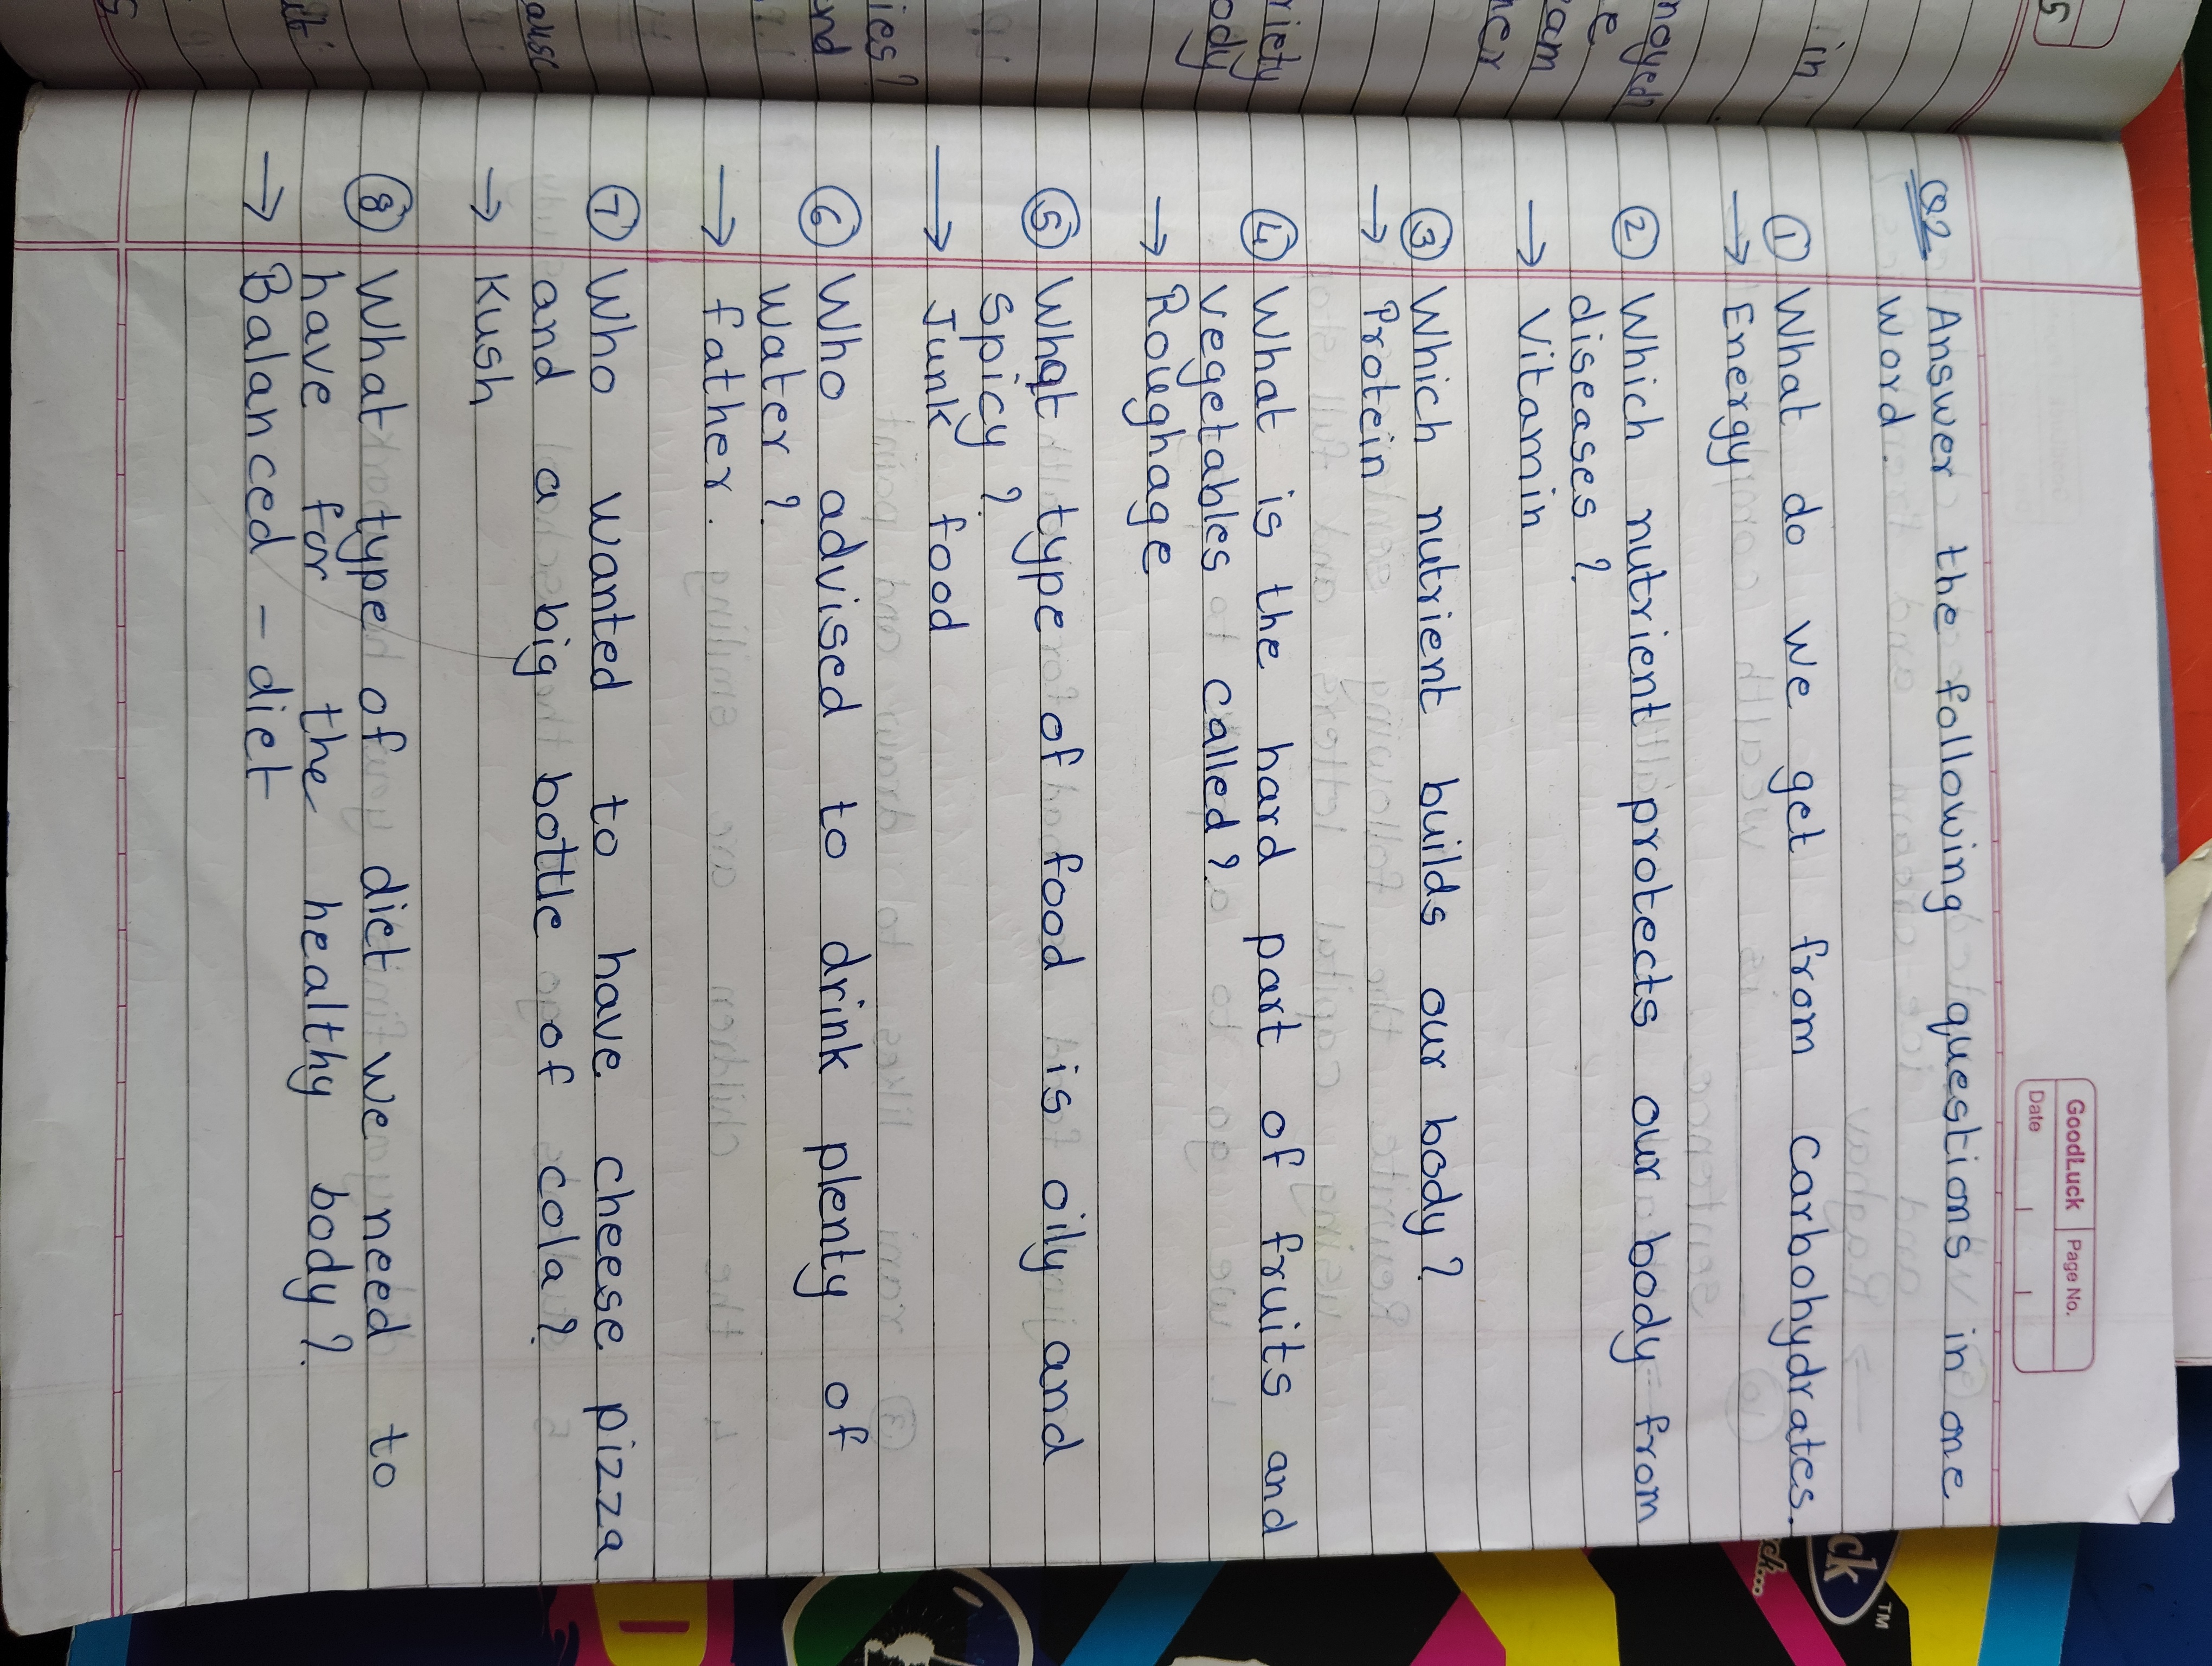 GoodLuck Page No.
Date
Q2 Answer the following questions in one
word.
① What do we get from carbohydrates.
→ Energy
② Which nutrient protects our body from
diseases ?
→ Vitamin
③ Which nutrient builds our body ?
→ Protein
④ What is the hard part of fruits and
vegetables called ?
→ Roughage
⑤ What type of food is oily and
spicy ?
→ Junk food
⑥ Who advised to drink plenty of
water ?
→ father.
⑦ Who wanted to have cheese pizza
and a big bottle of cola ?
→ Kush
⑧ What type of diet we need to
have for the healthy body ?
→ Balanced - diet